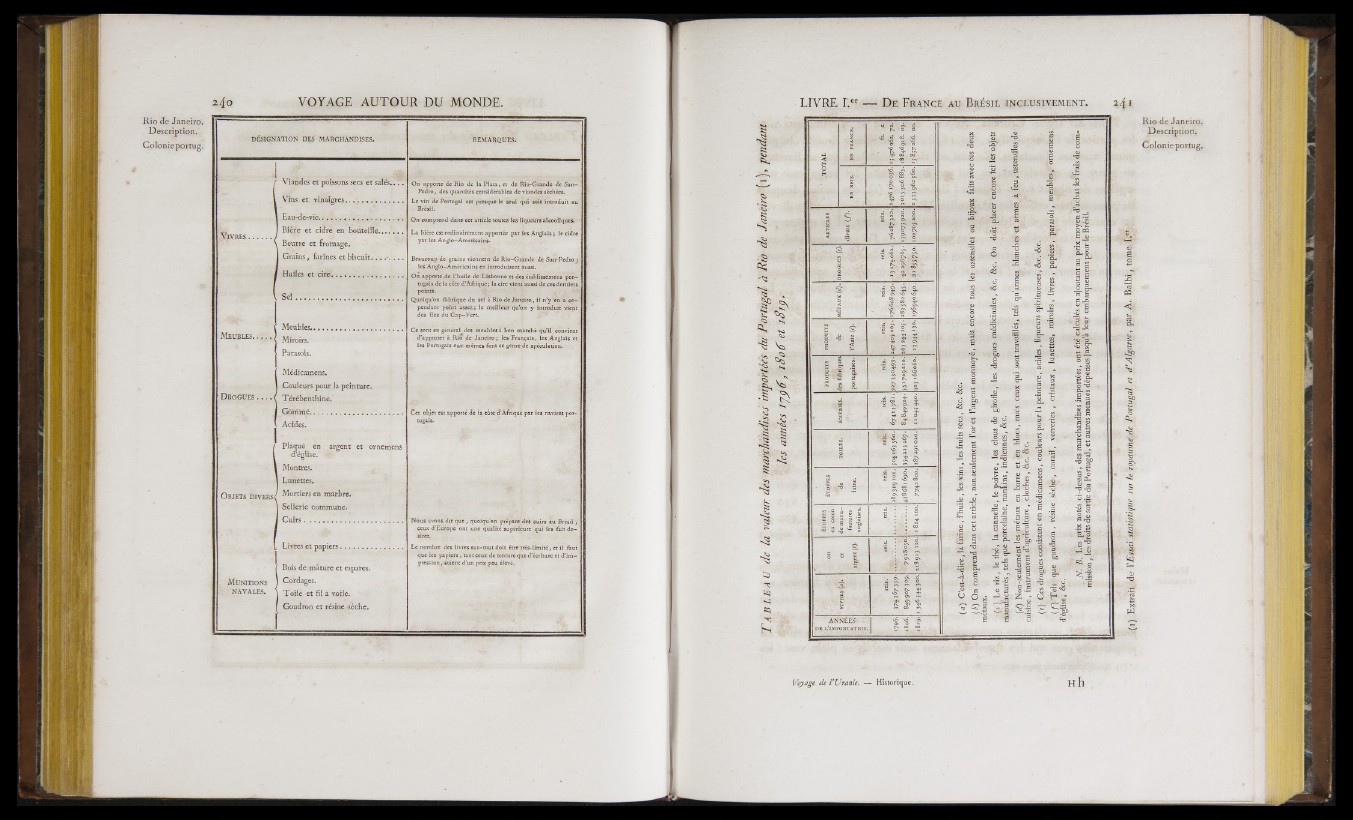 240 VOYAGE AUTOUR DU MONDE.
Rio de Janeiro.
Description.
Colonie portug.
DÉSIGNATION DES MARCHANDISES.
REMARQUES.
VIVRES
Viandes et poissons secs et salés....
On apporte de Rio de la Plata, et de Rio-Grande de San-
Pedro, des quantités considérables de viandes sèches.
Vins et vinaigres
Le vin de Portugal est presque le seul qui soit introduit au
Brésil.
Eau-de-vie
On comprend dans cet article toutes les liqueurs alcooliques.
Bière et cidre en bouteille
La bière est ordinairement apportée par les Anglais; le cidre
par les Anglo-Américains.
Beurre et fromage.
Grains, farines et biscuit
Beaucoup de grains viennent de Rio-Grande de San-Pedro;
les Anglo-Américains en introduisent aussi.
Huiles et cire
On apporte de l'huile de Lisbonne et des établissemens por-
tugais de la côte d'Afrique; la cire vient aussi de ces derniers
points.
Sel
Quoiqu'on fabrique du sel à Rio de Janeiro, il n'y en a ce-
pendant point assez; le meilleur qu'on y introduit vient
des îles du Cap-Vert.
MEUBLES
Meubles
Ce sont en général des meubles à bon marché qu'il convient
d'apporter à Rio de Janeiro; les Français, les Anglais et
les Portugais eux-mêmes font ce genre de spéculation.
Miroirs.
Parasols.
DROGUES
Médicamens.
Couleurs pour la peinture.
Térébenthine.
Gomme
Cet objet est apporté de la côte d'Afrique par les navires por-
tugais.
Acides.
OBJETS DIVERS
Plaqué en argent et ornemens
d'église.
Montres.
Lunettes.
Mortiers en marbre.
Sellerie commune.
Cuirs
Nous avons dit que, quoiqu'on prépare des cuirs au Brésil,
ceux d'Europe ont une qualité supérieure qui les fait dé-
sirer.
Livres et papiers
Le nombre des livres sur-tout doit être très-limité, et il faut
que les papiers, tant ceux de tenture que d'écriture et d'im-
pression, soient d'un prix peu élevé.
MUNITIONS
NAVALES.
Bois de mâture et esparres.
Cordages.
Toile et fil à voile.
Goudron et résine sèche.
LIVRE I.er — DE FRANCE AU BRÉSIL INCLUSIVEMENT. 241
Rio de Janeiro.
Description.
Colonie portug.
TABLEAU de la valeur des marchandises importées du Portugal à Rio de Janeiro (1), pendant
les années 1796, 1806 et 1819.
ANNÉES
DE L'IMPORTATION.
VIVRES (a).
OR
et
argent (b).
ÉTOFFES
en coton
de manu-
factures
anglaises.
ÉTOFFES
de
laine.
TOILES.
SOIERIES.
PRODUITS
des fabriques
portugaises.
PRODUITS
de
l'Asie (c).
MÉTAUX (d).
DROGUES (e).
ARTICLES
divers (f).
TOTAL
EN REIS.
EN FRANCS.
1796.
1806.
1819.
(a) C'est-à-dire, la farine, l'huile, les vins, les fruits secs, &c. &c.
(b) On comprend dans cet article, non-seulement l'or et l'argent monnoyé, mais encore tous les ustensiles ou bijoux faits avec ces deux
métaux.
(c) Le riz, le thé, la cannelle, le poivre, les clous de girofle, les drogues médicinales, &c. &c. On doit placer encore ici les objets
manufacturés, tels que porcelaine, nankins, indiennes, &c.
(d) Non-seulement les métaux en barre et en blocs, mais ceux qui sont travaillés, tels qu'armes blanches et armes à feu, ustensiles de
cuisine, instrumens d'agriculture, cloches, &c. &c.
(e) Ces drogues consistent en médicamens, couleurs pour la peinture, acides, liqueurs spiritueuses, &c. &c.
(f) Tels que goudron, résine sèche, corail, verreries, cristaux, lunettes, miroirs, livres, papiers, parasols, meubles, ornemens
d'église, &c.
N. B. Les prix notés ci-dessus, des marchandises importées, ont été calculés en ajoutant au prix moyen d'achat les frais de com-
mission, les droits de sortie du Portugal, et autres menues dépenses jusqu'à leur embarquement pour le Brésil.
(1) Extrait de l'Essai statistique sur le royaume de Portugal et d'Algarve, par A. Balbi, tome I.er
Voyage de l'Uranie. — Historique.
Hh